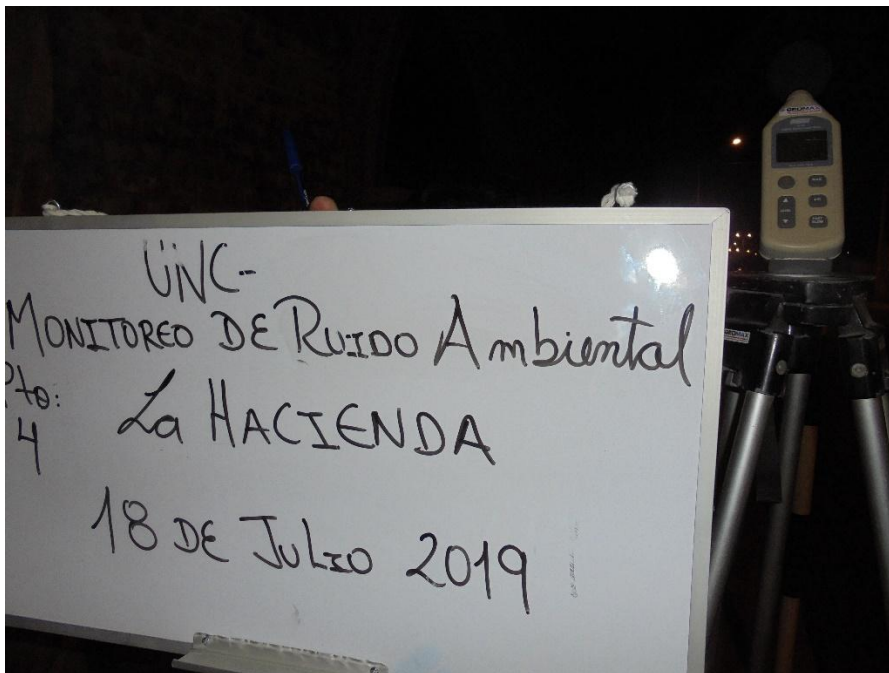 UNC-
MONITOREO DE RUIDO Ambiental
Pto:
4
La HACIENDA
18 DE JULIO 2019